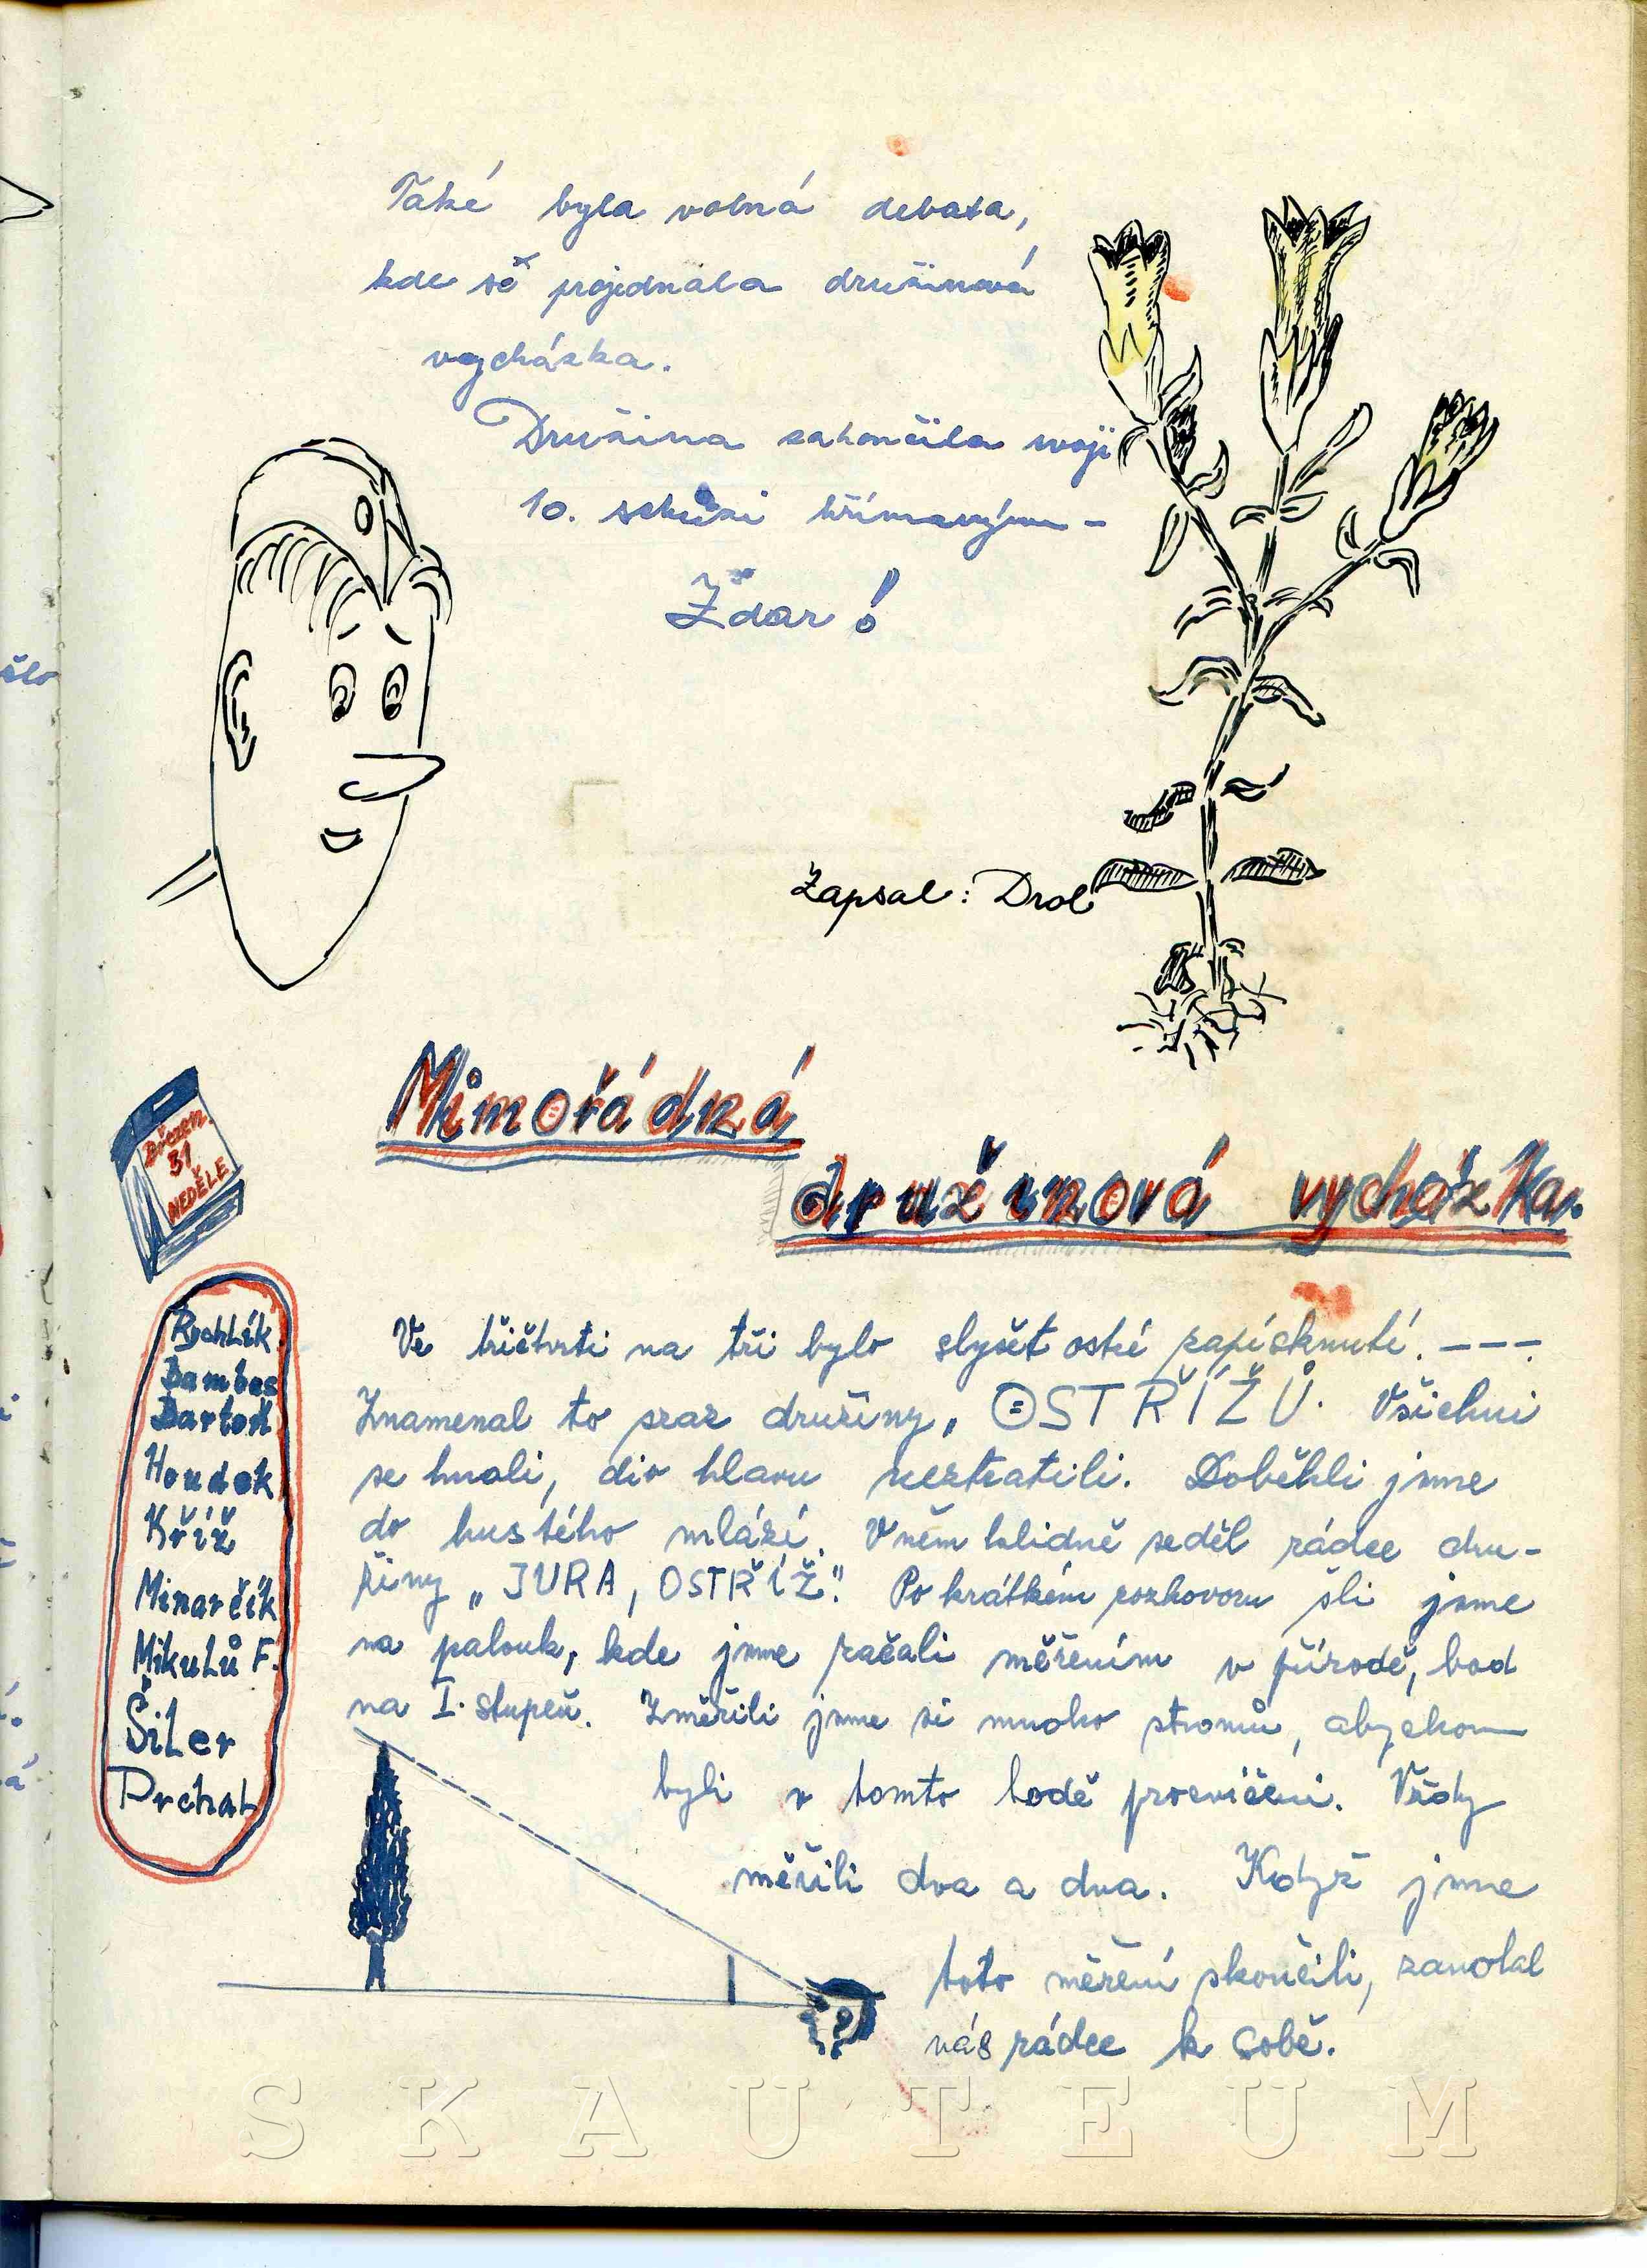 Také byla volná debata,
kde se projednala družinová
vycházka.
Družina zakončila svoji
10. schůzi hřímavým -
Zdar!
Zapsal: Drol
Mimořádná
družinová vycházka.
Březen.
31
NEDĚLE
Rychlík
Bambas
Bartoň
Houdek
Kříž
Minarčík
Mikulů F.
Šiler
Drchal
Ve třičtvrti na tři bylo slyšet ostré zapísknutí. - - - .
Znamenal to sraz družiny „OSTŘÍŽŮ. Všichni
se hnali, div hlavu neztratili. Doběhli jsme
do hustého mlází. V něm klidně seděl rádce dru-
žiny „JURA, OSTŘÍŽ". Po krátkém rozhovoru šli jsme
na palouk, kde jsme začali měřením v přírodě, bod
na I. stupeň. Změřili jsme si mnoho stromů, abychom
byli v tomto bodě procvičeni. Vždy
měřili dva a dva. Když jsme
toto měření skončili, zavolal
nás rádce k sobě.
SKAUTEUM